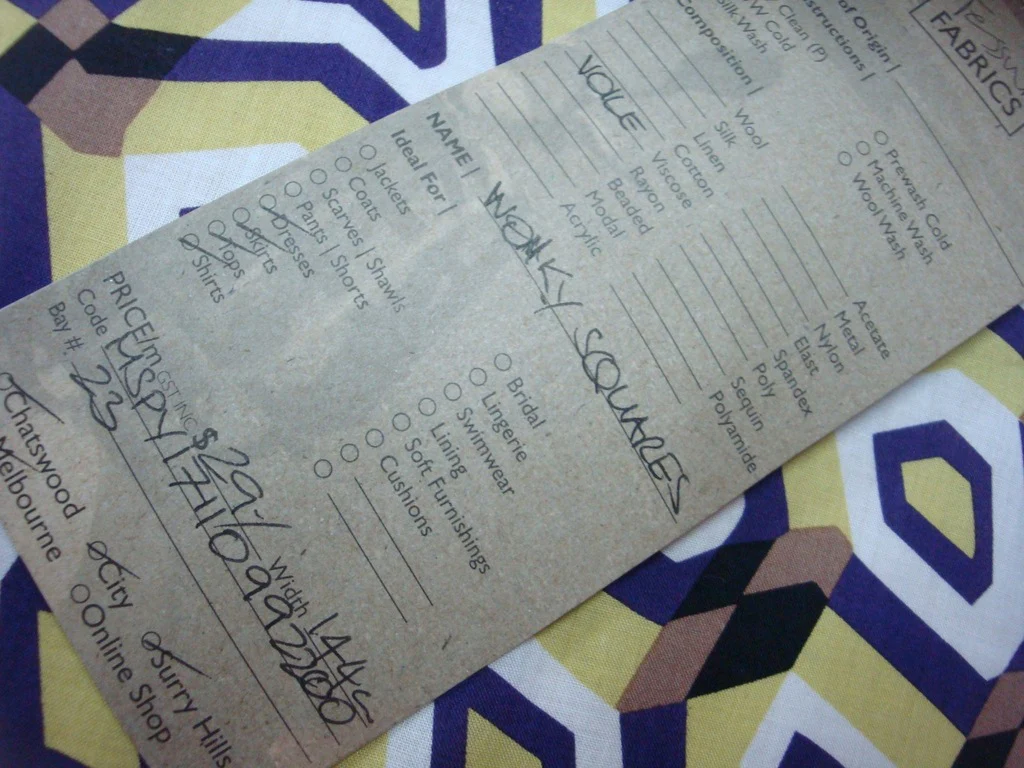 FABRICS
of Origin |
Prewash Cold
Machine Wash
Wool Wash
Clean (P)
W Cold
Silk Wash
Composition |
Wool
Silk
Linen
Cotton
VOILE Viscose
Rayon
Beaded
Modal
Acrylic
Acetate
Metal
Nylon
Elast
Spandex
Poly
Sequin
Polyamide
NAME | WONKY SQUARES
Ideal For |
Jackets
Coats
Scarves | Shawls
Pants | Shorts
Dresses
Skirts
Tops
Shirts
Bridal
Lingerie
Swimwear
Lining
Soft Furnishings
Cushions
PRICE/m GST INC $29-/ Width 144c
Code MSPY17110992200
Bay #: 23
Chatswood City Surry Hills
Melbourne Online Shop